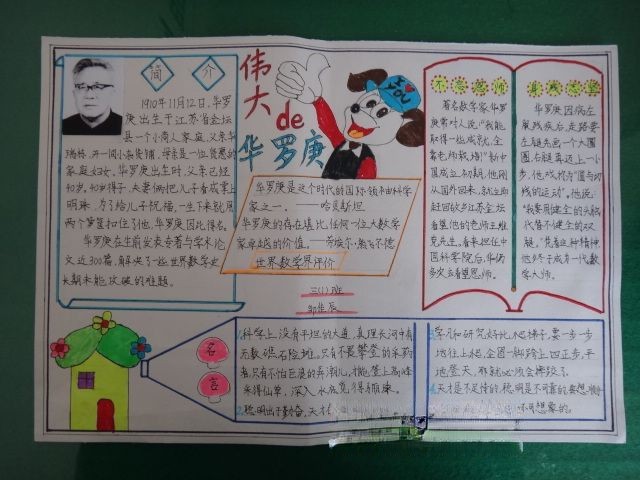 简介
1910年11月12日,华罗
庚出生于江苏省金坛
县一个小商人家庭,父亲华
瑞栋,开一间小杂货铺,母亲是一位贤惠的
家庭妇女。华罗庚出生时,父亲已经
40岁,40岁得子,夫妻俩把儿子看成掌上
明珠,为了给儿子祝福,一生下来就用
两个箩筐扣住了他,华罗庚因此得名。
华罗庚在生前发表专著与学术论
文近300篇,解决了一些世界数学史
长期未能攻破的难题。
伟大de华罗庚
I
YOU
华罗庚是这个时代的国际领袖科学
家之一。——哈贝斯坦
华罗庚的存在堪比任何一位大数学
家卓越的价值。——劳埃尔·熊飞尔德
世界数学界评价
三(1)班
邹佳辰
不忘恩师
著名数学家华罗
庚常对人说:“我能
取得一些成就,全
靠老师栽培!”新中
国成立初期,他刚
从国外回来,就立即
赶回故乡江苏金坛
看望他的老师王维
克先生。后来担任中
国科学院后,华仍
多次去看望恩师。
身残志坚
华罗庚因病左
腿残疾后,走路要
左腿先画一个大圆
圈,右腿再迈上一小
步,他戏称为“圆与切
线的运动”。他说:
“我要用健全的头脑
代替不健全的双
腿,”凭着这种精神,
他终于成为一代数
学大师。
名言
1.科学上没有平坦的大道,真理长河中有
无数礁石险滩。只有不畏攀登的采药
者,只有不怕巨浪的弄潮儿,才能登上高峰
采得仙草,深入水底觅得骊珠。
2.聪明出于勤奋,天才
3.学习和研究好比爬梯子,要一步一步
地往上爬,企图一脚跨上四五步,平
地登天,那就必须会摔跤了
4.天才是不足恃的,聪明是不可靠的,要想顺手
是不可想象的。